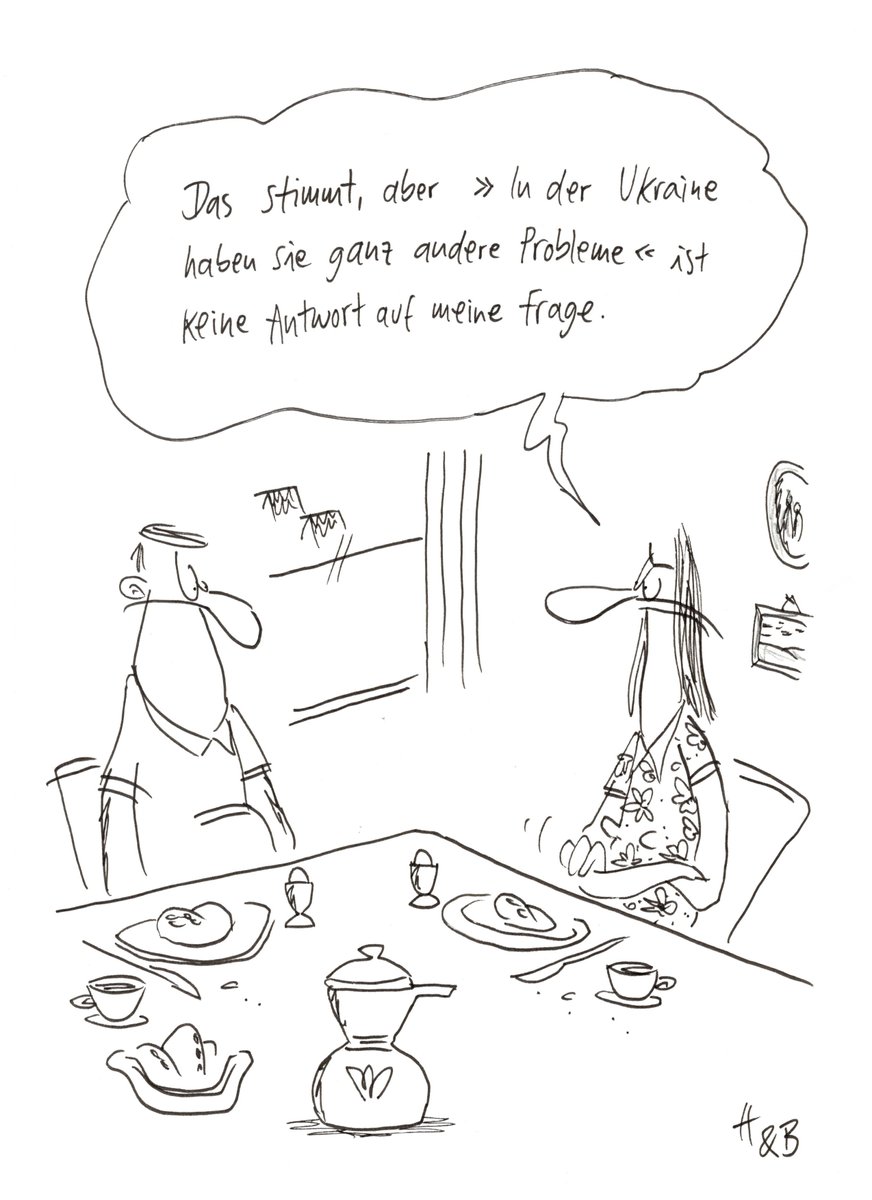 Das stimmt, aber » In der Ukraine
haben sie ganz andere Probleme « ist
keine Antwort auf meine Frage.
H
&B